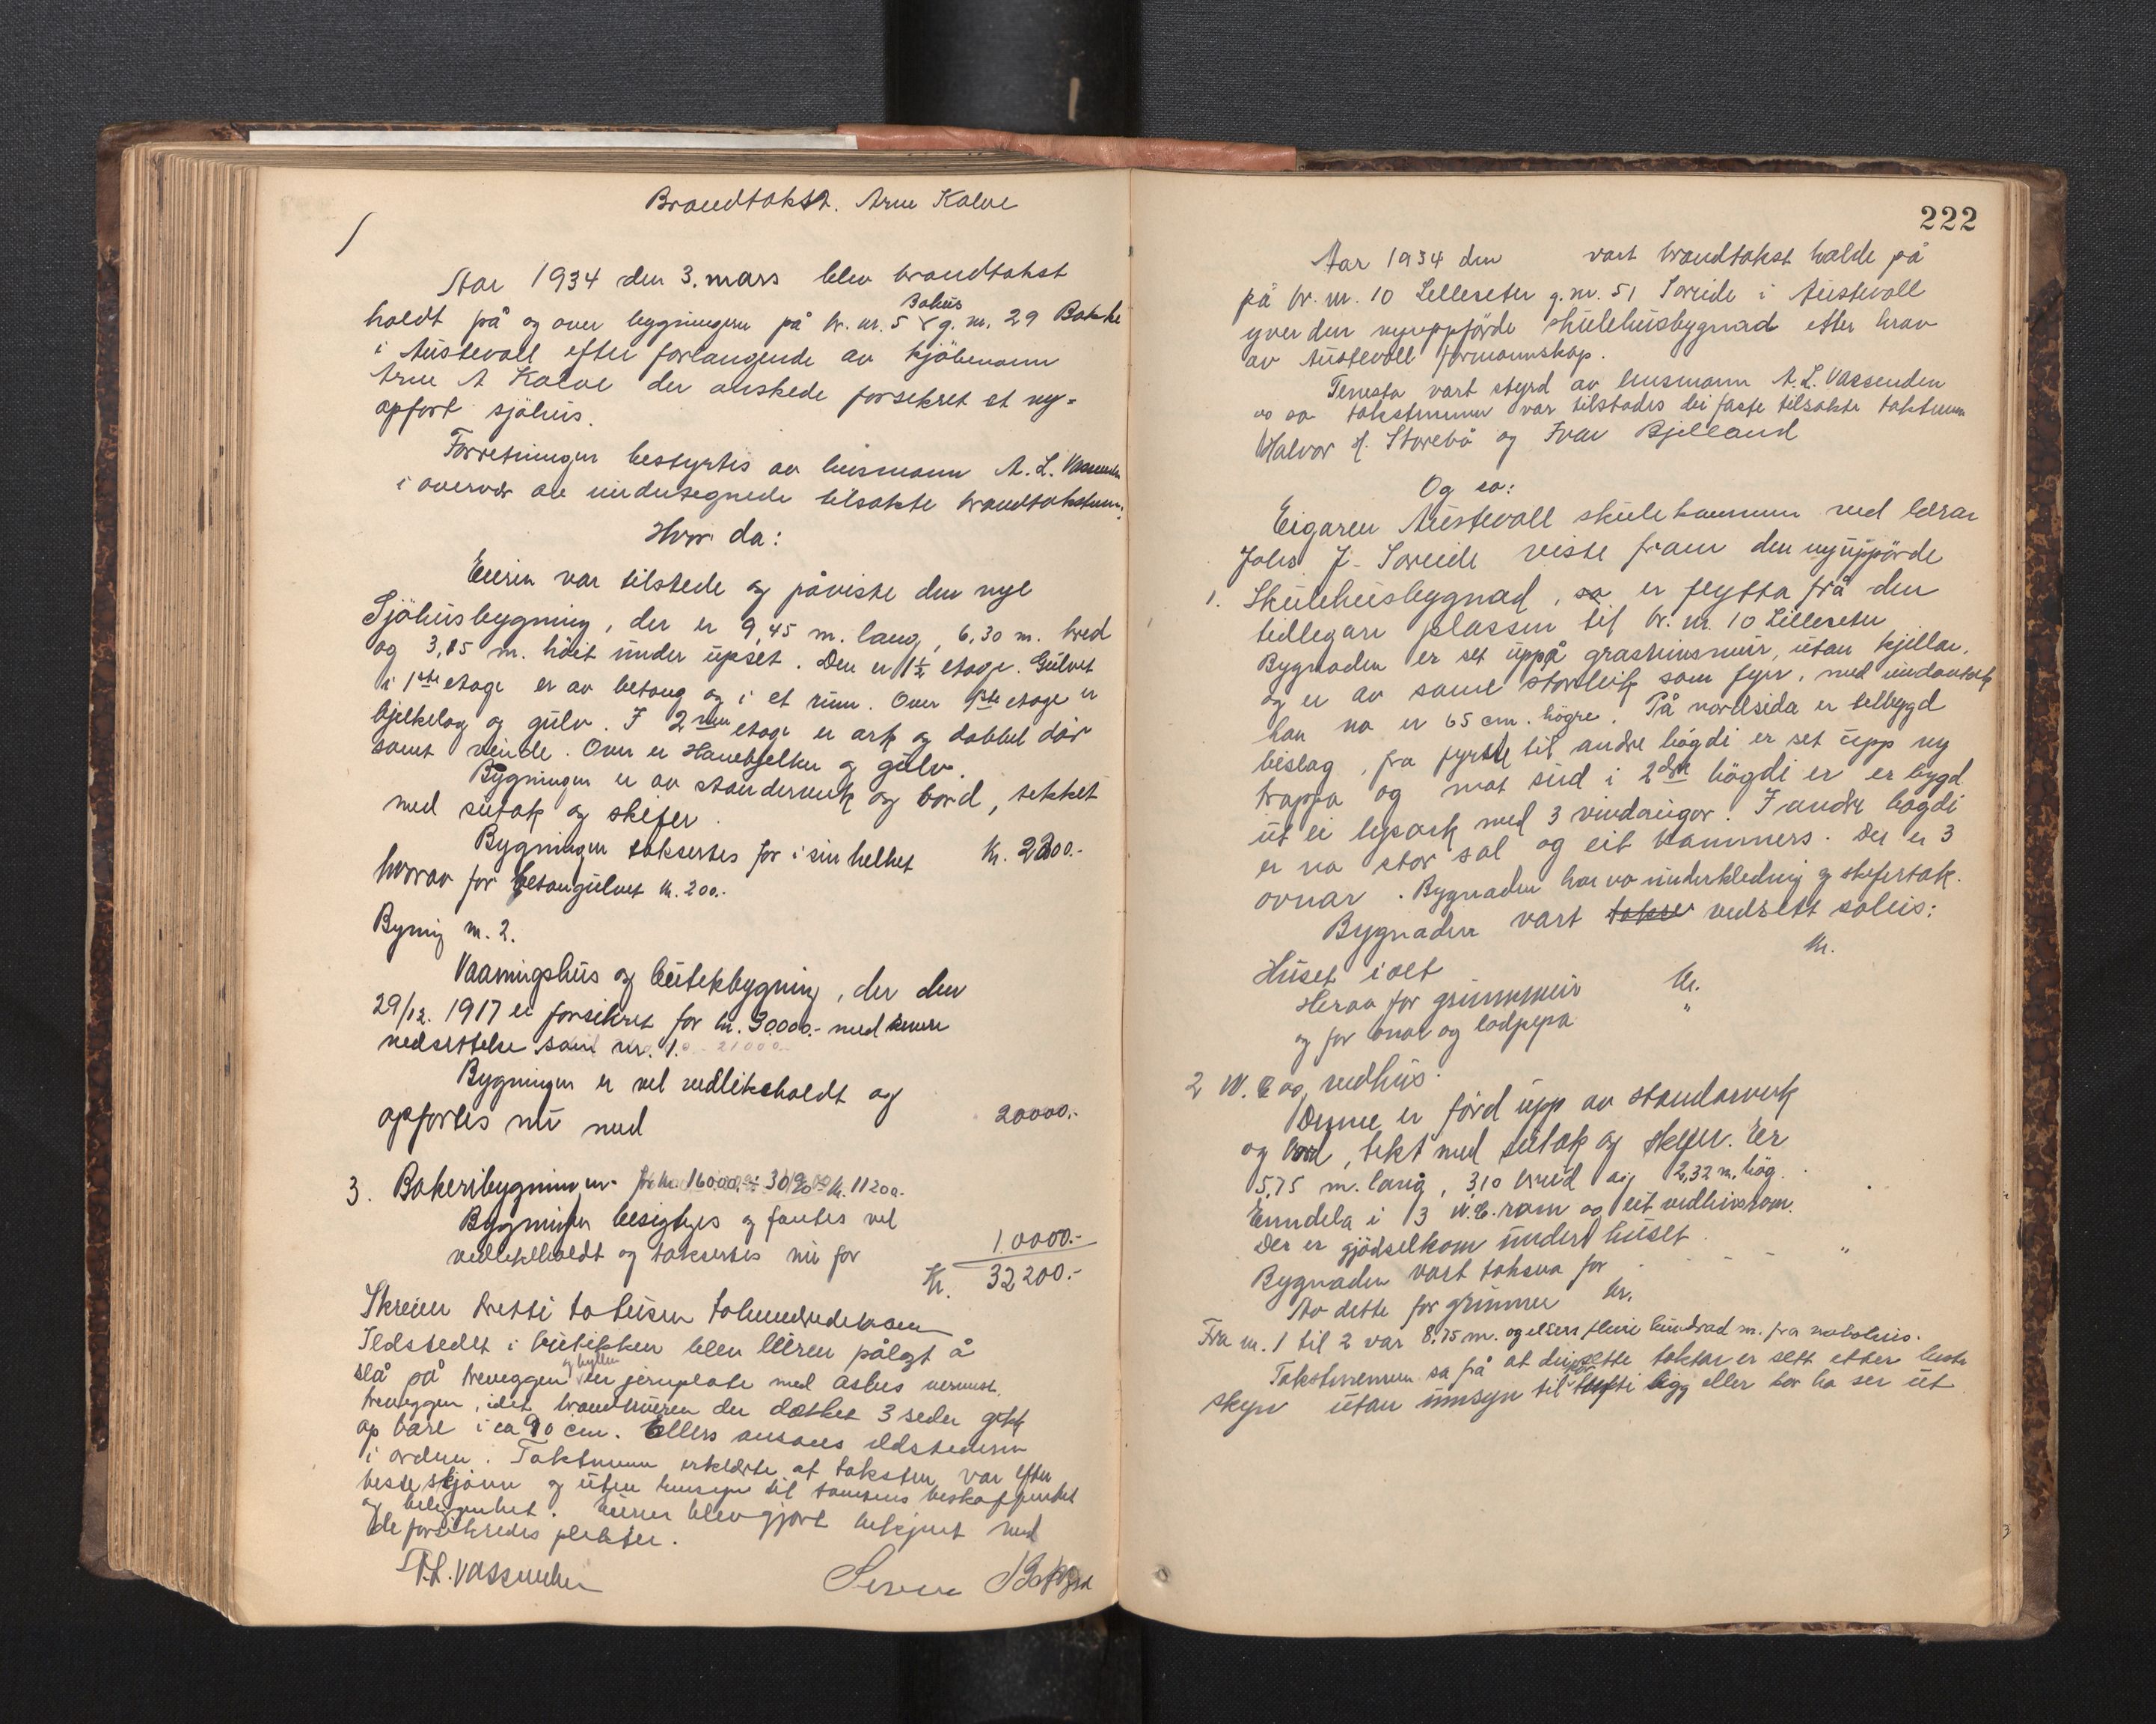 Brandtakst. Arne Kalve
Aar 1934 den 3. mars blev brandtakst
Bakeis
holdt på og over bygningen på br. nr. 5 g. nr. 29 Bakke
i Austevoll efter forlangende av kjöbmann
Arne A Kalve der önskede forsekret et ny-
opfort sjöhus.
Forretningen bestyrtes av lensmann A. L. Vassenden
i overvær av undersegnede tilsakte brandtakstmenn.
Hvor da:
Eieren var tilstede og påviste den nye
Sjöhusbygning, der er 9,45 m. lang, 6,30 m. bred
og 3,15 m. höit under upset. Den er 1½ etage. Gulvet
i 1ste etage er av betong og i et rum. Over 1ste etage er
bjelkelag og gulv. I 2nen etage er ark og dobbel dör
samt vinde. Over er Hanebjelker og gulv.
Bygningen er av standerverk og bord, tekket
med sutak og skefer.
Bygningen taksertes for i sin helhet kr. 2200.-
hvorav for betongulvet kr. 200.-
Bygning nr. 2.
Vaaningshus og butekbygning, der den
29/12. 1917 er forsikret for kr. 30000.- med senere
nedsettelse som nr. 1. 21000.-
Bygningen er vel vedlikeholdt og
opfortes nu med 20000.-
3. Bakeribygningen for kr. 16000.- ÷ 30% kr. 11200.-
Bygningen besigtiges og fantes vel
vedlekeholdt og taksertes nu for 10000.-
Kr. 32200.-
Skriver tretti totusen tohundrede kroner
Ildstedet i butikken blev Eieren pålagt å
og hyllen
slå på treveggen en jernplate med asbes nermest
treveggen, idet brandmuren der dækket 3 seder gikk
op bare i ca 90 cm. Ellers ansaes ildstederne
i orden. Takstmenn erklærte at taksten var efter
beste skjönn og uten hensyn til tomtens beskaffenhet
og beliggenhet. Eieren blev gjort bekjent med
de forsikredes plekter.
A. L. Vassenden Severin Bakke
222
Aar 1934 den vart brandtakst halde på
på br. nr. 10 Lilleseter g. nr. 51 Söreide i Austevoll
yver den nyuppförde skulehusbygnad etter krav
av Austevoll formannskap.
Tenesta vart styrd av lensmann A. L. Vassenden
og so takstmenn var tilstades dei faste tilsakte takstmenn
Halvor H. Storebö og Ivar Bjelland
Og so:
Eigaren Austevoll skulekommune ved lærar
Johs J. Söreide viste fram den nyuppförde
1. Skulehusbygnad, so er flytta frå den
tidlegare plassen til br. nr. 10 Lilleseter
Bygnaden er set uppå grasteinsmur, utan kjellar,
og er av same storleik som fyrr, med undantak
han no er 65 cm. högre. På nordsida er tilbygd
bislag, fra fyrste til andre högdi er set upp ny
trappa og mot sud i 2dre högdi er er bygd
ut ei lysark med 3 vindauger. I andre högdi
er no stor sal og eit kammers. Der er 3
ovnar. Bygnaden har no underkledning og skefertak.
Bygnaden vart takser verdsett soleis:
Huset i alt kr.
Herav for grunnmur kr.
og for ovnar og ladpipa "
2 W. C og vedhus.
Denne er förd upp av standarverk
og bord, tekt med sutak og skefer. Er
5,75 m. lang, 3,10 breid og 2,32 m. hög.
Enndela i 3 W.C. rom og eit vedhusrom.
Der er gjödselkom under huset
Bygnaden vart taksra for - - - "
Av dette for grunnen kr.
Fra nr. 1 til 2 var 8,75 m. og elsers fleire hundrad m. fra nabohus.
Takstmennene sa frå at deira takstar er sett etter beste
skyn utan umsyn til tufti ligg eller kor ho ser ut